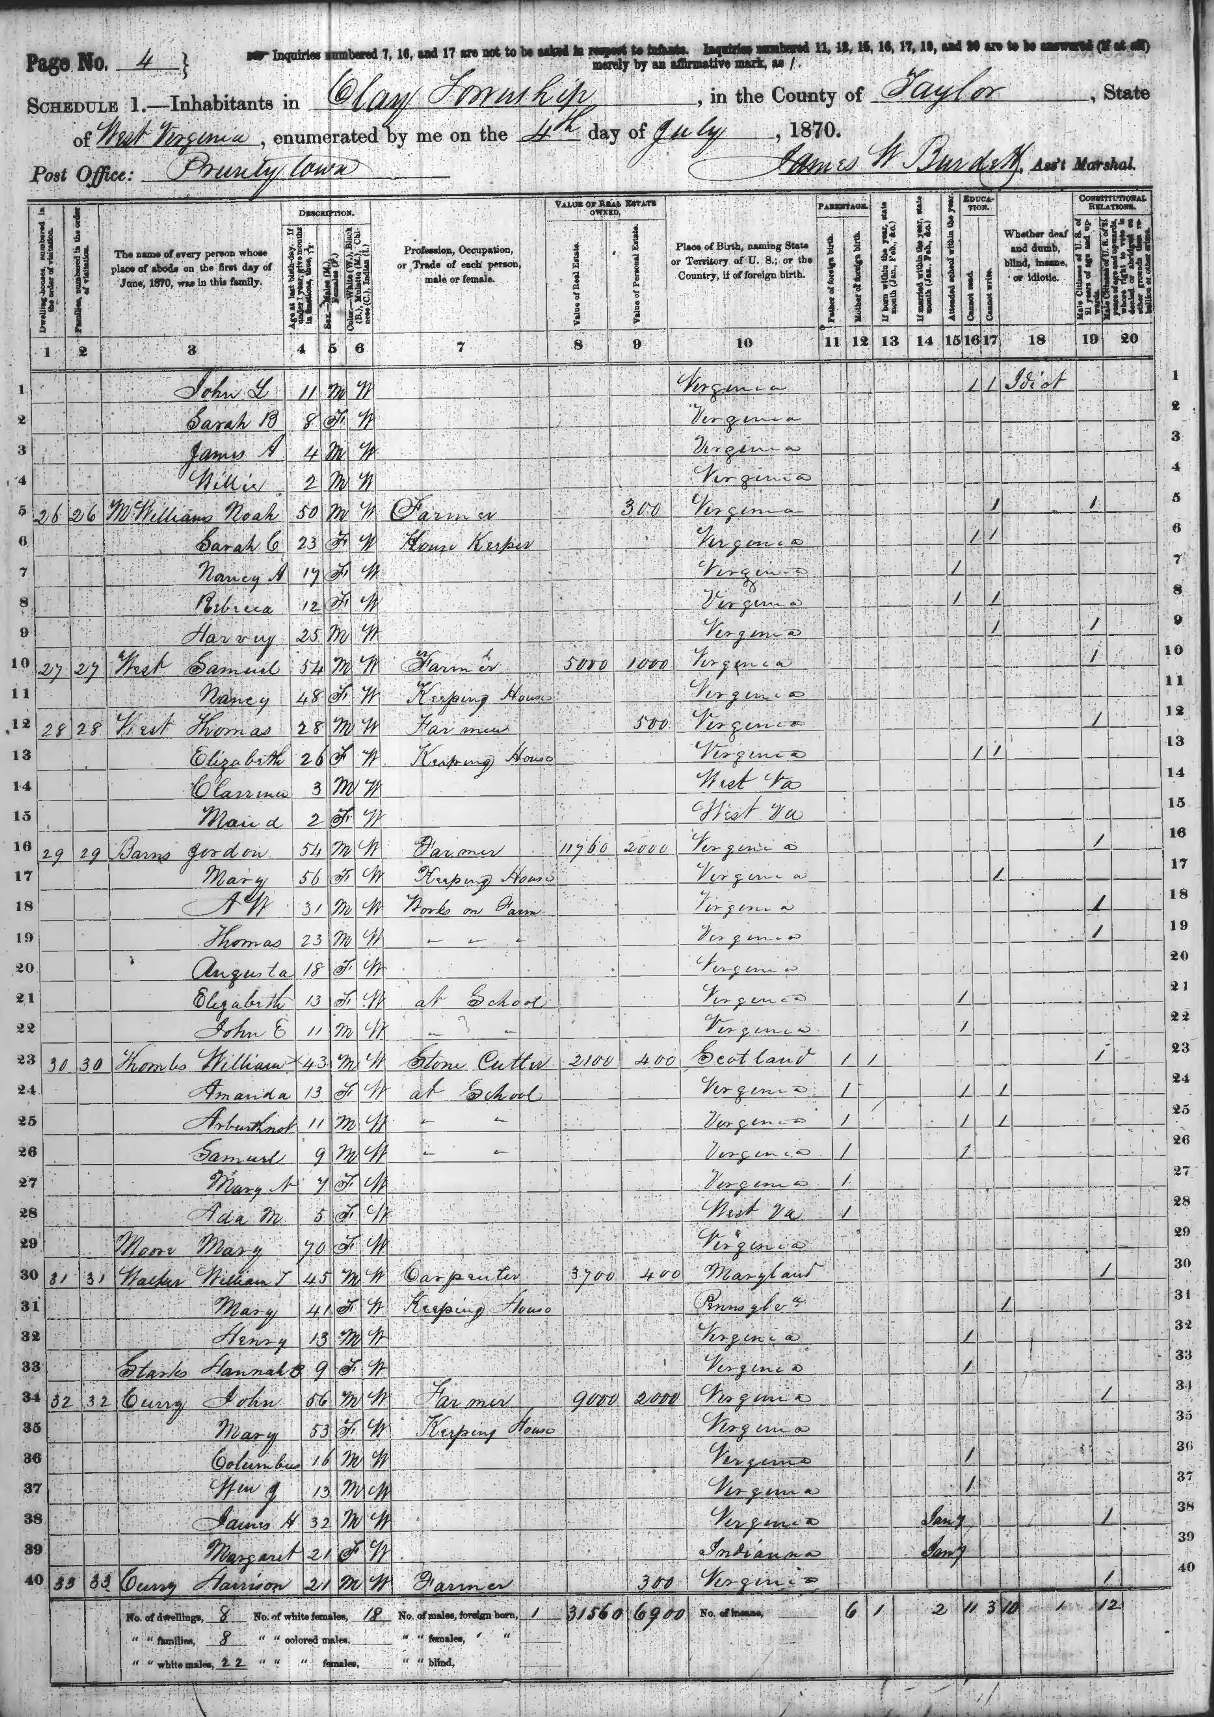 Page No. 4 } Inquiries numbered 7, 16, and 17 are not to be asked in respect to infants. Inquiries numbered 11, 12, 15, 16, 17, 19, and 20 are to be answered (if at all)
merely by an affirmative mark, as /.
SCHEDULE 1.—Inhabitants in Clay Township, in the County of Taylor, State
of West Virginia, enumerated by me on the 4th day of July, 1870.
Post Office: Pruntytown James W Burdett, Ass't Marshal.
DESCRIPTION. VALUE OF REAL ESTATE OWNED. PARENTAGE. EDUCATION. CONSTITUTIONAL RELATIONS.
Dwelling-houses, numbered in the order of visitation.
Families, numbered in the order of visitation.
The name of every person whose place of abode on the first day of June, 1870, was in this family.
Age at last birth-day. If under 1 year, give months in fractions, thus, 3/12
Sex.—Males (M.), Females (F.)
Color.—White (W.), Black (B.), Mulatto (M.), Chinese (C.), Indian (I.)
Profession, Occupation, or Trade of each person, male or female.
Value of Real Estate.
Value of Personal Estate.
Place of Birth, naming State or Territory of U. S.; or the Country, if of foreign birth.
Father of foreign birth.
Mother of foreign birth.
If born within the year, state month (Jan., Feb., &c.)
If married within the year, state month (Jan., Feb., &c.)
Attended school within the year.
Cannot read.
Cannot write.
Whether deaf and dumb, blind, insane, or idiotic.
Male Citizens of U. S. of 21 years of age and upwards.
Male Citizens of U. S. of 21 years of age and upwards, where right to vote is denied or abridged on other grounds than rebellion or other crime.
1 2 3 4 5 6 7 8 9 10 11 12 13 14 15 16 17 18 19 20
1 John L 11 M W Virginia 1 1 Idiot 1
2 Sarah B 8 F W Virginia 2
3 James A 4 M W Virginia 3
4 Willie 2 M W Virginia 4
5 26 26 McWilliams Noah 50 M W Farmer 300 Virginia 1 1 5
6 Sarah C 23 F W House Keeper Virginia 1 1 6
7 Nancy A 17 F W Virginia 1 7
8 Rebecca 12 F W Virginia 1 1 8
9 Harvey 25 M W Virginia 1 1 9
10 27 27 West Samuel 54 M W Farmer 5000 1000 Virginia 1 10
11 Nancy 48 F W Keeping House Virginia 11
12 28 28 West Thomas 28 M W Farmer 500 Virginia 1 12
13 Elizabeth 26 F W Keeping House Virginia 1 1 13
14 Clarence 3 M W West Va 14
15 Maud 2 F W West Va 15
16 29 29 Barns Jordon 54 M W Farmer 11760 2000 Virginia 1 16
17 Mary 56 F W Keeping House Virginia 1 17
18 A W 31 M W Works on Farm Virginia 1 18
19 Thomas 23 M W " " " Virginia 1 19
20 Augusta 18 F W Virginia 20
21 Elizabeth 13 F W at School Virginia 1 21
22 John E 11 M W " " Virginia 1 22
23 30 30 Thombs William 43 M W Stone Cutter 2100 400 Scotland 1 1 1 23
24 Amanda 13 F W at School Virginia 1 1 1 24
25 Arburthnot 11 M W " " Virginia 1 1 1 25
26 Samuel 9 M W " " Virginia 1 1 26
27 Mary A 7 F W Virginia 1 27
28 Ada M 5 F W West Va 1 28
29 Moore Mary 70 F W Virginia 29
30 31 31 Walker William T 45 M W Carpenter 3700 400 Maryland 1 30
31 Mary 41 F W Keeping House Pennsylva 1 31
32 Henry 13 M W Virginia 1 32
33 Starks Hannah B 9 F W Virginia 1 33
34 32 32 Curry John 56 M W Farmer 9000 2000 Virginia 1 34
35 Mary 53 F W Keeping House Virginia 35
36 Columbus 16 M W Virginia 1 36
37 Wm J 13 M W Virginia 1 37
38 James H 32 M W Virginia Jany 1 38
39 Margaret 21 F W Indianna Jany 39
40 33 33 Curry Harrison 21 M W Farmer 300 Virginia 1 40
No. of dwellings, 8 No. of white females, 18 No. of males, foreign born, 1 31560 6900 No. of insane, 6 1 2 11 3 10 1 12
" " families, 8 " " colored males, " " females, " "
" " white males, 22 " " " females, " " blind,